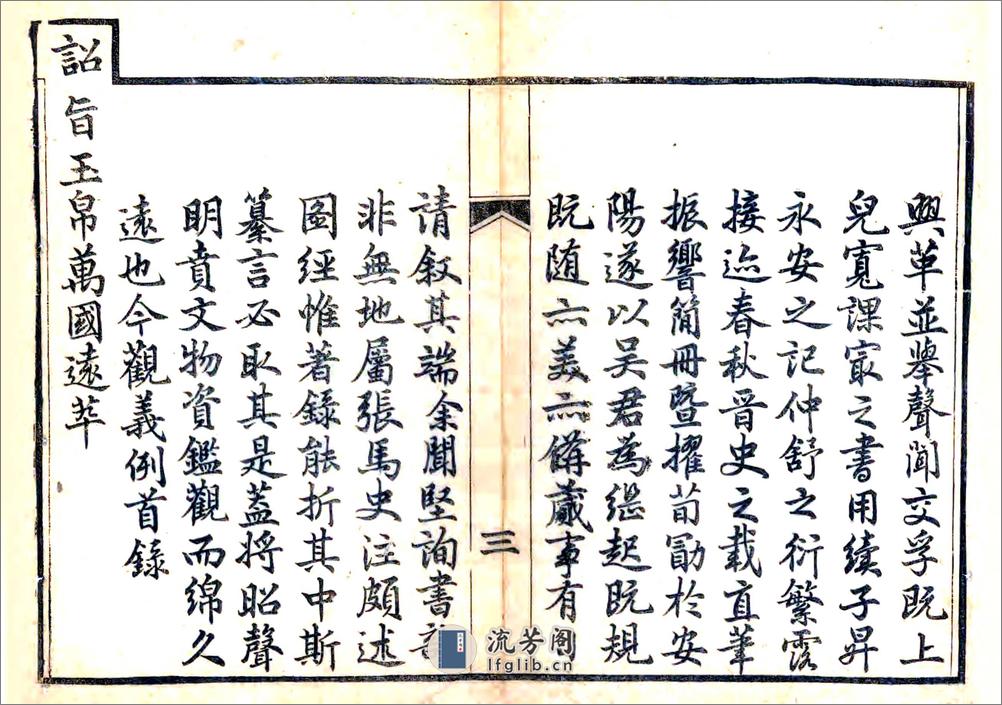 興革並舉聲聞交孚既上
兒寬課冣之書用續子昇
永安之記仲舒之衍繁露
接迹春秋晉史之載直筆
振響簡冊暨擢荀勖於安
陽遂以吴君為繼起既規
既随亦美亦備蕆事有
三
請叙其端余聞堅詢書
非無地屬張馬史注頗述
圖經惟著錄能折其中斯
纂言必取其是蓋將昭聲
明賁文物資鑑觀而綿久
遠也今觀義例首錄
詔旨玉帛萬國遠萃
流芳阁
lfglib.cn